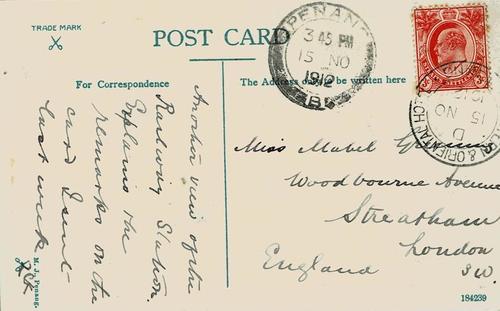 TRADE MARK
POST CARD
For Correspondence
The Address only to be written here
PENANG
3 45 PM
15 NO
1912
B
15 NO
D
Another view of the
Railway Station.
Explains the
remarks on the
card I sent
last week
Miss Mabel
Woodbourne Avenue
Streatham
London
S.W.
England
M. J., Penang.
184239